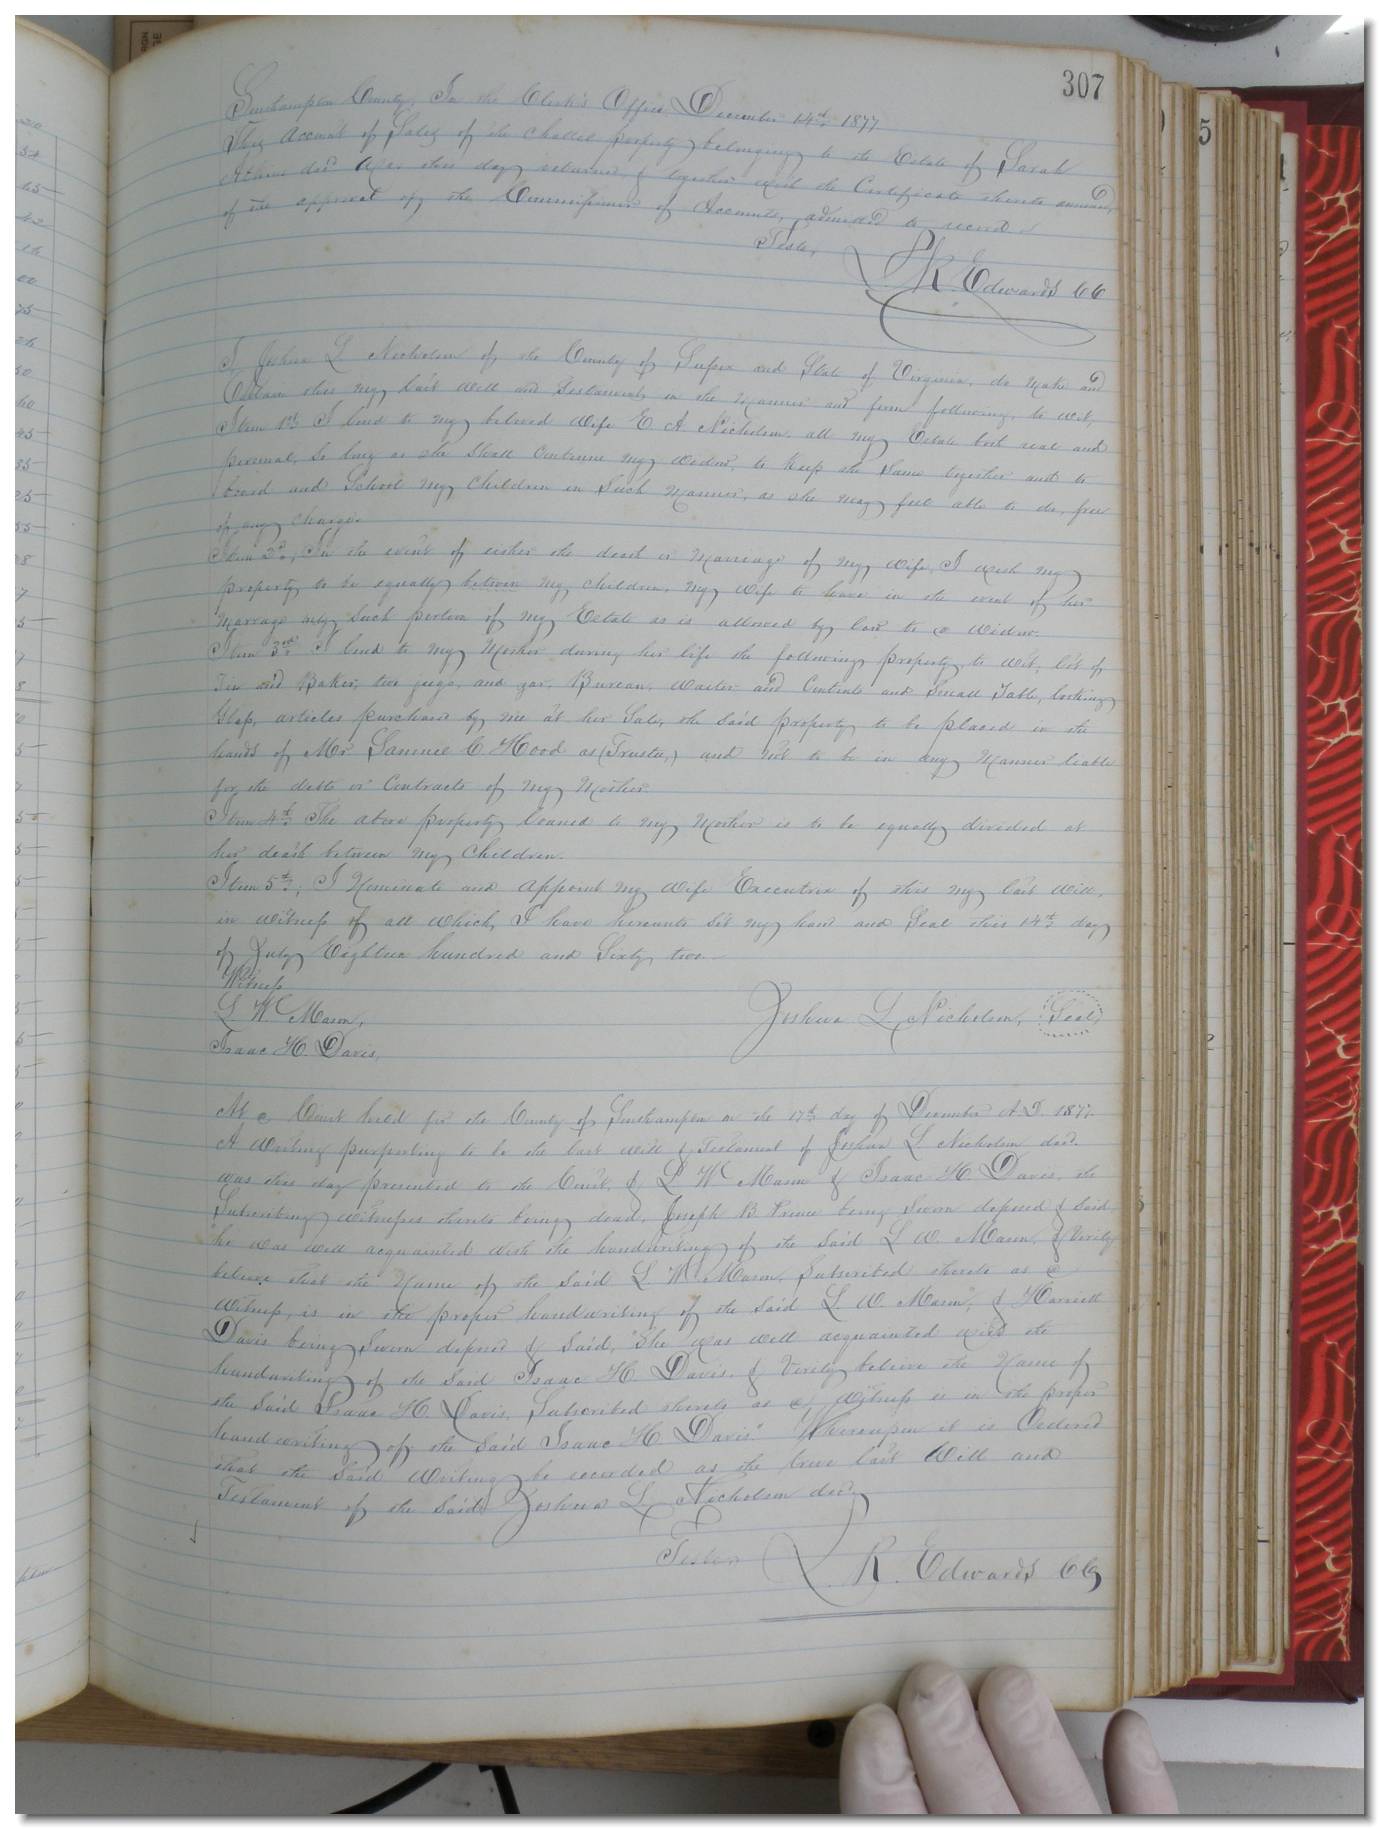 307
Southampton County, In the Clerk's Office, December 14th 1877
This Account of Sales of the Chattel property belonging to the Estate of Sarah
decd was this day returned & together with the Certificate thereto annexed,
of the approval of the Commissioner of Accounts, admitted to record
Teste,
L R Edwards CC
I Joshua L Nicholson of the County of Sussex and State of Virginia, do make and
Ordain this my last will and Testament, in the manner and form following, to wit,
Item 1st I lend to my beloved wife E A Nicholson, all my Estate both real and
personal, So long as she Shall Continue my widow, to Keep the Same together and to
board and School my Children in Such manner, as she may feel able to do, free
of any charge.
Item 2d, In the event of either the death or Marriage of my wife, I wish my
property to be equally between my children, my wife to have in the event of her
Marrage only Such portion of my Estate as is allowed by law to a widow.
Item 3rd I lend to my Mother during her life the following property, to wit, lot of
Tin and Baker, two jugs, and jar, Bureau, waiter and Contents and Small Table, looking
Glass, articles purchased by me at her Sale, the said property to be placed in the
hands of Mr Samuel C Hood as (Trustee,) and not to be in any Manner liable
for the debts or Contracts of my Mother.
Item 4th The above property loaned to my Mother is to be equally divided at
her death between my Children.
Item 5th, I Nominate and appoint my wife Executrix of this my last will,
in witness of all which, I have hereunto set my hand and Seal this 14th day
of July Eighteen hundred and Sixty two.
Witness
L W Mason,
Joshua L Nicholson, Seal,
Isaac H. Davis,
At a Court held for the County of Southampton on the 17th day of December A.D. 1877.
A Writing purporting to be the last will & Testament of Joshua L Nicholson decd.
was this day presented to the Court, & L W Mason & Isaac H Davis, the
Subscribing witnesses thereto being dead, Joseph B Prince being Sworn deposed & Said,
"he was well acquainted with the handwriting of the Said L W. Mason, & Verily
believe that the Name of the Said L W Mason, Subscribed thereto as a
witness, is in the proper handwriting of the Said L. W. Mason", & Harriett
Davis being Sworn deposed & Said, "She was well acquainted with the
handwriting of the Said Isaac H. Davis, & Verily believe the Name of
the Said Isaac H. Davis, Subscribed thereto as a witness is in the proper
handwriting of the Said Isaac H. Davis." Whereupon it is Ordered
that the Said Writing be recorded as the true last Will and
Testament of the Said Joshua L Nicholson decd,
Teste
L R. Edwards CC